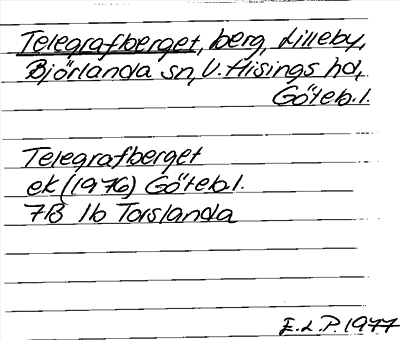 Telegrafberget, berg, Lilleby,
Björlanda sn, V. Hisings hd,
Göteb.l.
Telegrafberget
ek (1976) Göteb.l.
7B 1b Torslanda
E.L.P. 1977